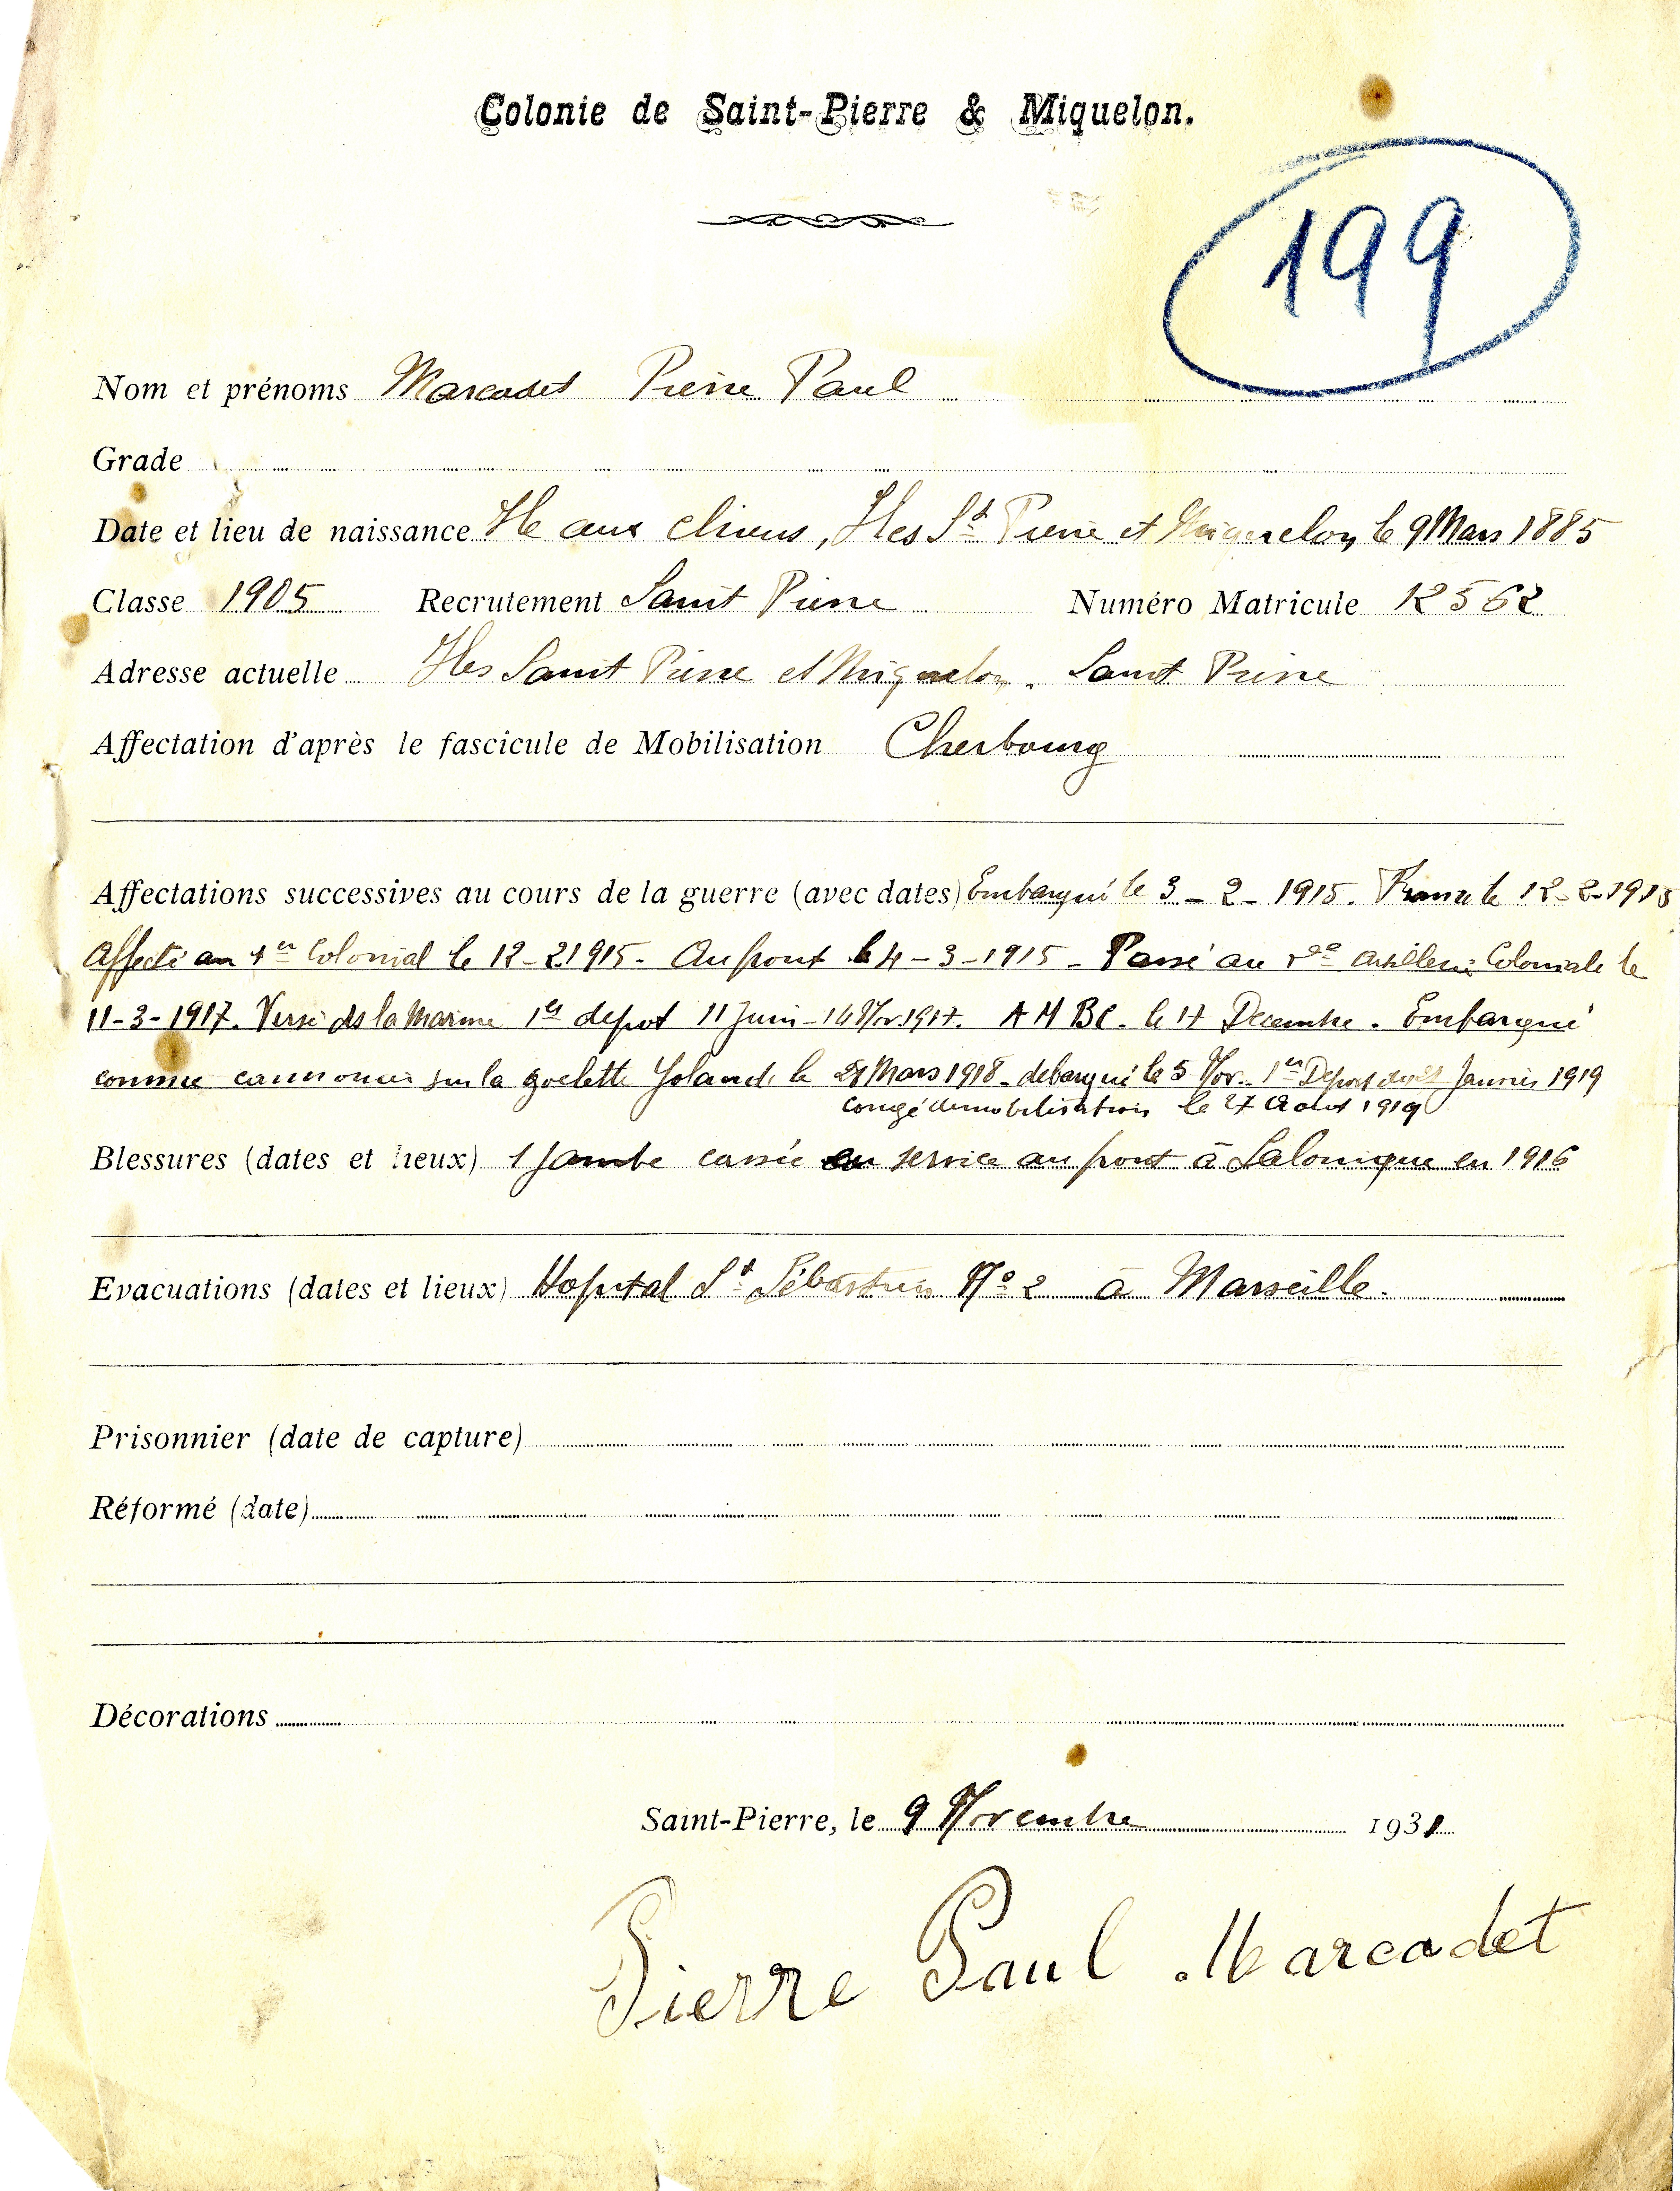 Colonie de Saint-Pierre & Miquelon.
199
Nom et prénoms Marcadet Pierre Paul
Grade
Date et lieu de naissance Ile aux chiens, Iles St Pierre et Miquelon, le 9 Mars 1885
Classe 1905 Recrutement Saint Pierre Numéro Matricule 12562
Adresse actuelle Iles Saint Pierre et Miquelon. Saint Pierre
Affectation d'après le fascicule de Mobilisation Cherbourg
Affectations successives au cours de la guerre (avec dates) Embarqué le 3-2-1915. France le 12-2-1915
Affecté au 1er Colonial le 12-21915. Au front le 4-3-1915 - Passé au artillerie Coloniale le
11-3-1917. Versé ds la Marine 1er depot 11 Juin - 14 Nov. 1917. A M B C. le 17 Decembre. Embarqué
comme cannonier sur la goelette Yolande le Mars 1918 - debarqué le 5 Nov. 1er Depot Janvier 1919
congé demobilisation le 27 Aout 1919
Blessures (dates et lieux) 1 Jambe cassée en service au front à Salonique en 1916
Evacuations (dates et lieux) Hopital St Sébastien No 2 à Marseille.
Prisonnier (date de capture)
Réformé (date)
Décorations
Saint-Pierre, le 9 Novembre 1931
Pierre Paul Marcadet